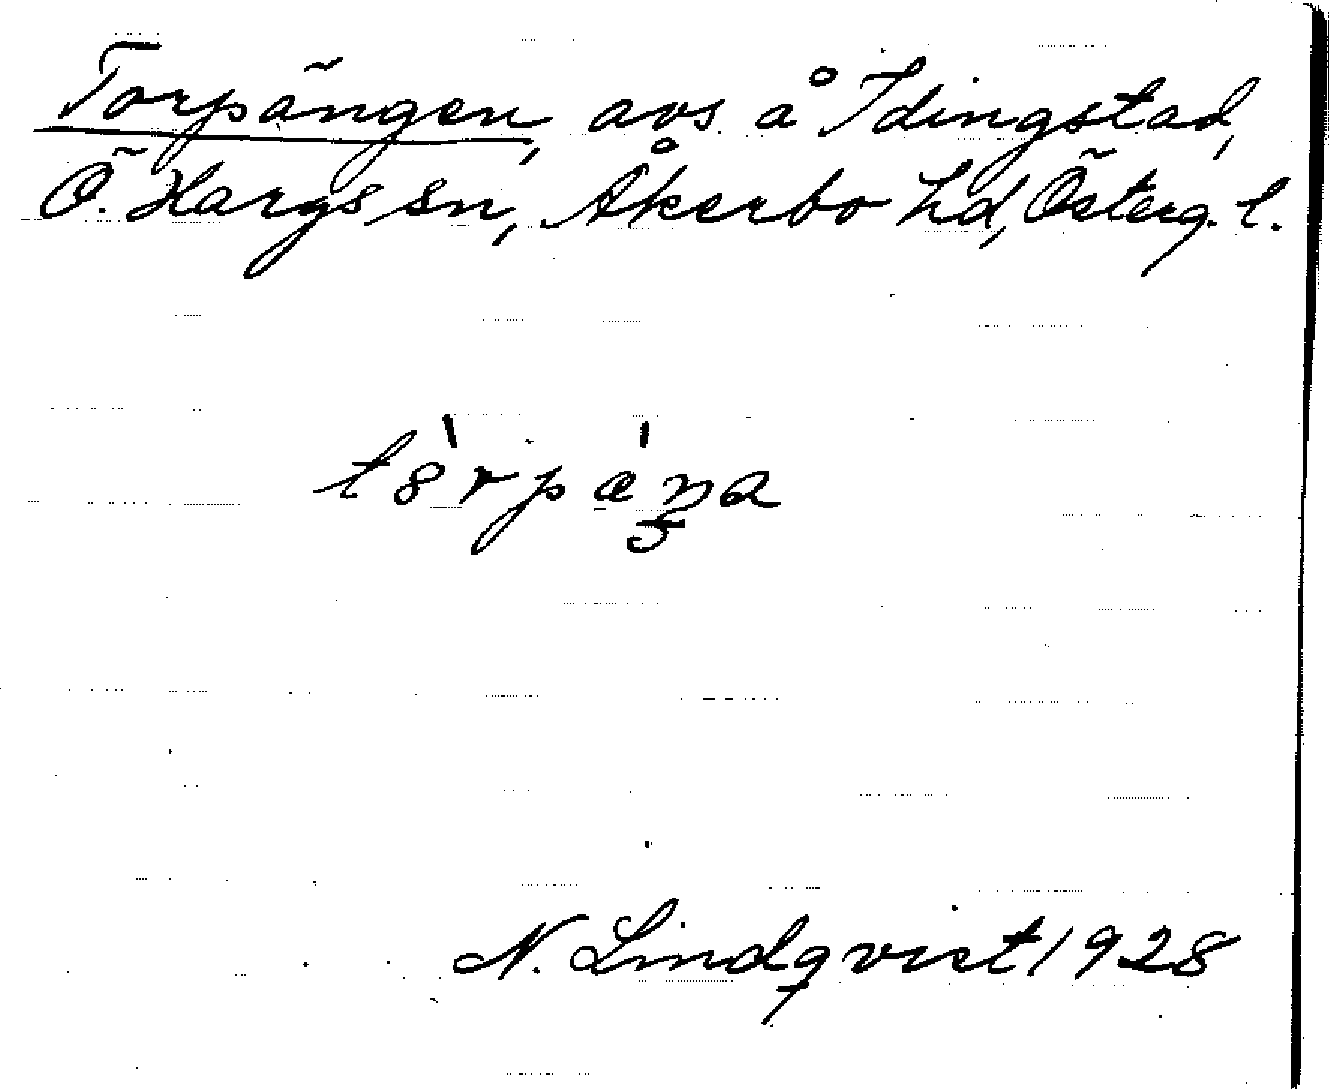 Torpängen, avs. å Idingstad,
Ö. Hargs sn, Åkerbo hd, Österg. l.
N. Lindqvist 1928